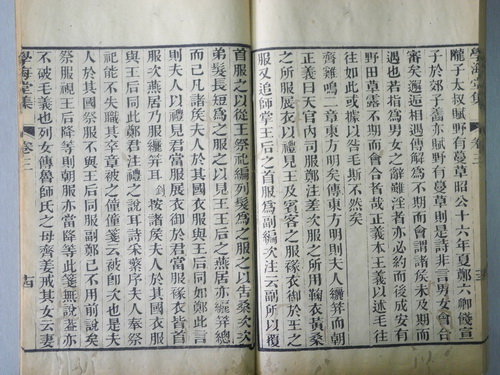 學海堂集 卷三
隴子太叔賦野有蔓草昭公十六年夏鄭六卿餞宣
子於郊子齹亦賦野有蔓草則是詩非言男女會合
審矣邂逅相遇傳解爲不期而會謂諸矦未及期而
遇也若指爲男女之辭雖淫者亦必約而後成安有
野田草露不期而會合者哉正義本王義以述毛往
往如此或據以咎毛斯不然矣
齊雞鳴二章東方明矣傳東方明則夫人纚笄而朝
正義曰天官內司服鄭注差次服之所用鞠衣黃桑
之服展衣以禮見王及賓客之服褖衣御於王之
服又追師掌王后之首服爲副編次注云副所以覆
首服之以從王祭祀編列髮爲之服之以告桑次次
弟髮長短爲之服之以見王王后之燕居亦纚笄總
而已凡諸矦夫人於其國衣服與王后同如鄭此言
則夫人以禮見君當服展衣御於君當服褖衣皆首
服次燕居乃服纚笄耳釗按諸矦夫人於其國衣服
與王后同此鄭君注禮之說耳詩采蘩序夫人奉祭
祀能不失職其卒章被之僮僮箋云被卽次也是夫
人於其國祭服不與王后同服副鄭已不用前說矣
祭服視王后降等則朝服亦當降等此箋無說蓋亦
不破毛義也列女傳魯師氏之母齊姜戒其女云妻
學海堂集 卷三